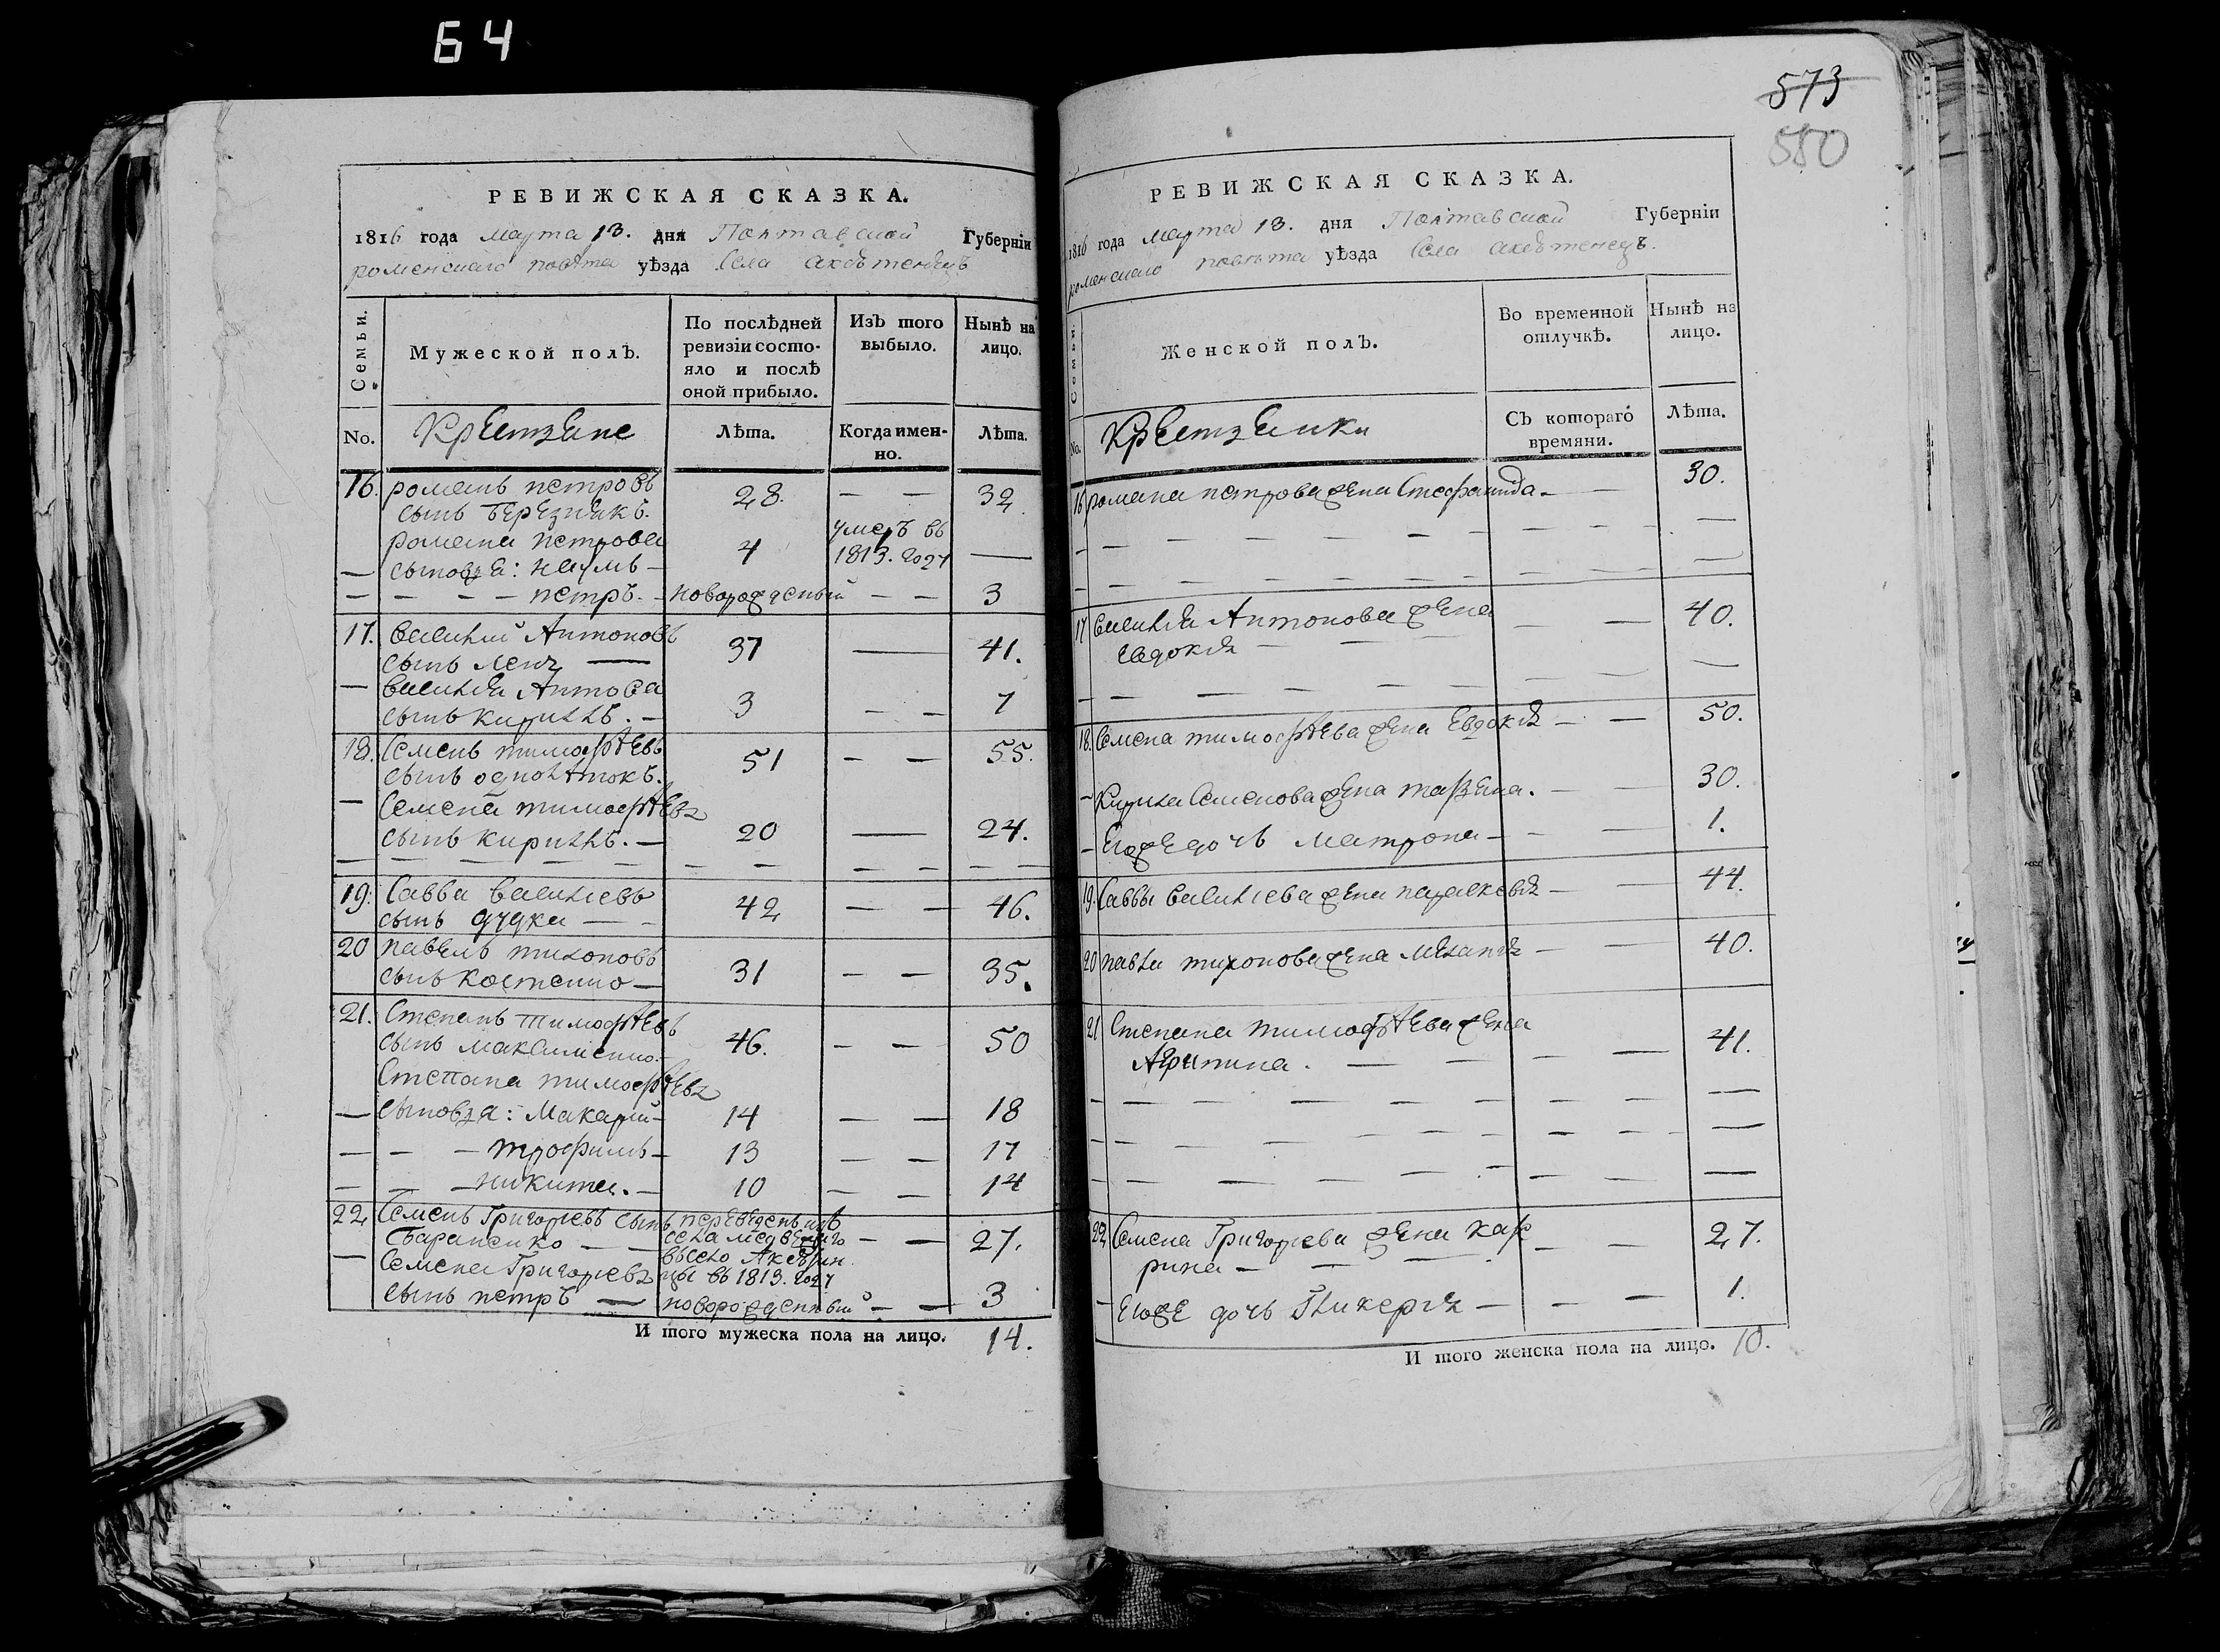 64
573
550
РЕВИЖСКАЯ СКАЗКА.
1816 года Марта 13. дня Полтавской Губерніи
роменскаго повѣта уѣзда Села
Семьи.
Мужеской полъ.
По послѣдней ревизіи состояло и послѣ оной прибыло.
Изъ того выбыло.
Нынѣ на лицо.
No.
Крестьяне
Лѣта.
Когда именно.
Лѣта.
16. романъ петровъ
сынъ Березнякъ. 28. — — 32
романа петрова
— сыновья: наумъ — 4 умеръ въ 1813. году —
— — — — петръ. — новорожденый — — 3
17. василий Антоновъ
сынъ 37 — 41.
— василія Антова
сынъ кирилъ. — 3 — — 7
18. Семенъ тимофѣевъ
сынъ однолѣтокъ. 51 — — 55.
— Семена тимофѣева
сынъ кирилъ. — 20 — 24.
19. Савва василіевъ
сынъ дудка — 42 — — 46.
20 павелъ тихоновъ
сынъ костенко — 31 — — 35.
21. Степанъ тимофѣевъ
сынъ максименко. — 46. — — 50
Степана тимофѣева
— сыновья: Макарий — 14 — — 18
— — — трофимъ — 13 — — 17
— — — никита. — 10 — — 14
22 Семенъ Григорьевъ сынъ переведенъ изъ
Бараненко — села медвежаго — — 27.
— Семена Григорьева въ село
сынъ петръ — цы въ 1813. году
новорожденный — — 3
И того мужеска пола на лицо. 14.
РЕВИЖСКАЯ СКАЗКА.
1816 года Марта 13. дня Полтавской Губерніи
роменскаго повѣта уѣзда Села
Семьи.
Женской полъ.
Во временной отлучкѣ.
Нынѣ на лицо.
No.
Крестьянки
Съ котораго времяни.
Лѣта.
16 романа петрова жена Стефанида — — 30.
17 василія Антонова жена
Евдокія — — — — 40.
18. Семена тимофѣева жена Евдокія — — 50.
— Кирила Семенова жена татяна. — — 30.
— Егоже дочь матрона — — — 1.
19. Саввы василіева жена параскевія — — 44.
20 павла тихонова жена меланія — — 40.
21 Степана тимофѣева жена
Агрипина. — — — — 41.
22 Семена Григорьева жена кате
рина — — — — — 27.
— Егоже дочь Гликерія — — — 1.
И того женска пола на лицо. 10.